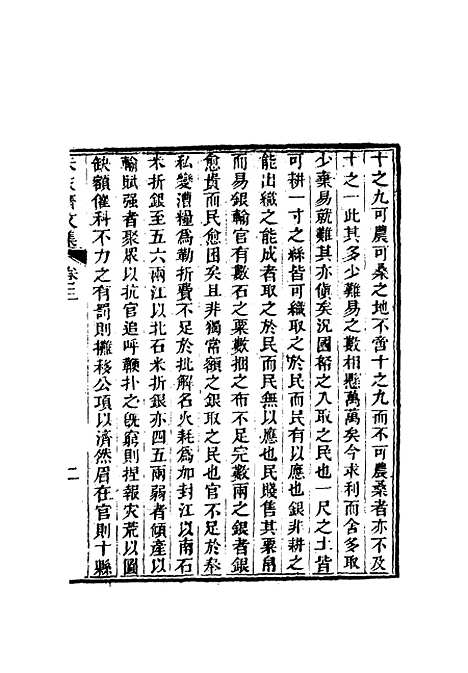 十之九可農可桑之地不啻十之九而不可農桑者亦不及
十之一此其多少難易之數相懸萬萬矣今求利而舍多取
少棄易就難其亦傎矣況國帑之入取之民也一尺之土皆
可耕一寸之絲皆可織取之於民而民有以應也銀非耕之
能出織之能成者取之於民而民無以應也民賤售其粟帛
而易銀輸官有數石之粟數捆之布不足完數兩之銀者銀
愈貴而民愈困矣且非獨常額之銀取之民也官不足於奉
私變漕糧為勒折費不足於批解名火耗為加封江以南石
米折銀至五六兩江以北石米折銀亦四五兩弱者傾產以
輸賦强者聚眾以抗官追呼鞭扑之旣窮則捏報灾荒以圖
缺額催科不力之有罰則攤移公項以濟然眉在官則十縣
齊文集 卷三 二